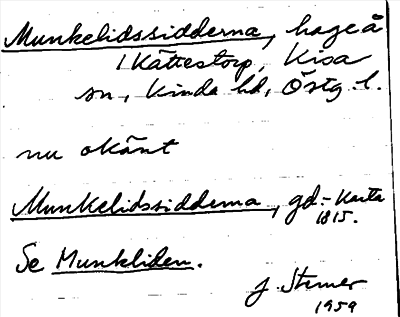 Munkelidssidderna, hage å
1 Kättestorp, Kisa
sn, Kinda hd, Östg. l.
nu okänt
Munkelidssidderna, gd.-karta
1815.
Se Munkliden.
J. Stemer
1959